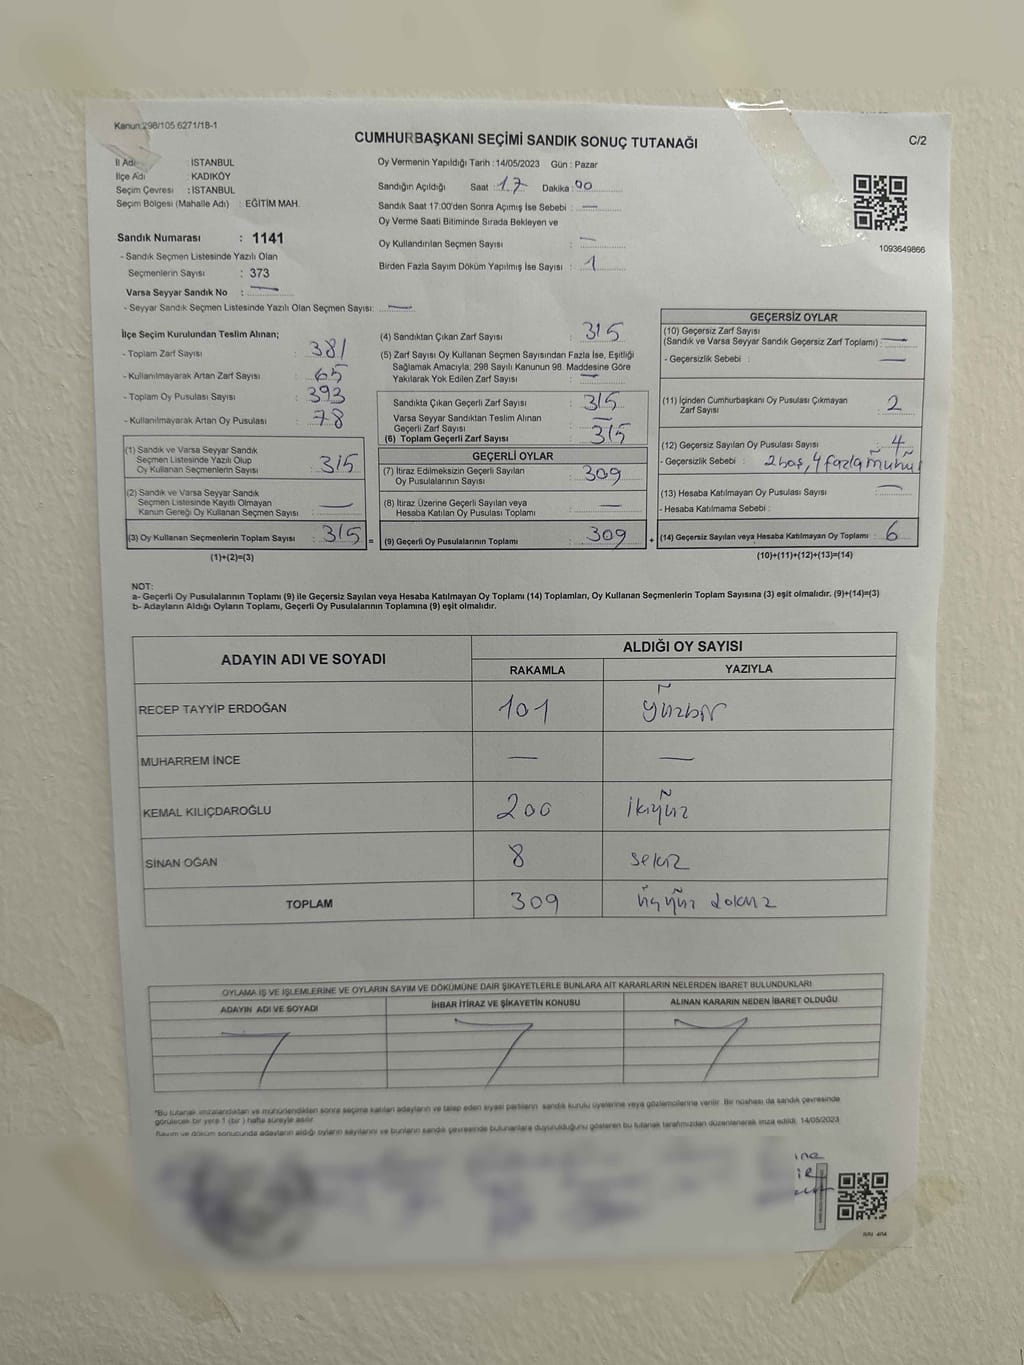 Kanun:298/105.6271/18-1
CUMHURBAŞKANI SEÇİMİ SANDIK SONUÇ TUTANAĞI
C/2
İl Adı : İSTANBUL
İlçe Adı : KADIKÖY
Seçim Çevresi : İSTANBUL
Seçim Bölgesi (Mahalle Adı) : EĞİTİM MAH.
Sandık Numarası : 1141
- Sandık Seçmen Listesinde Yazılı Olan
Seçmenlerin Sayısı : 373
Varsa Seyyar Sandık No : —
- Seyyar Sandık Seçmen Listesinde Yazılı Olan Seçmen Sayısı: —
Oy Vermenin Yapıldığı Tarih : 14/05/2023 Gün : Pazar
Sandığın Açıldığı Saat : 17 Dakika : 00
Sandık Saat 17:00'den Sonra Açılmış İse Sebebi : —
Oy Verme Saati Bitiminde Sırada Bekleyen ve
Oy Kullandırılan Seçmen Sayısı : —
Birden Fazla Sayım Döküm Yapılmış İse Sayısı : 1
1093649866
İlçe Seçim Kurulundan Teslim Alınan;
- Toplam Zarf Sayısı : 381
- Kullanılmayarak Artan Zarf Sayısı : 65
- Toplam Oy Pusulası Sayısı : 393
- Kullanılmayarak Artan Oy Pusulası : 78
(1) Sandık ve Varsa Seyyar Sandık
Seçmen Listesinde Yazılı Olup
Oy Kullanan Seçmenlerin Sayısı : 315
(2) Sandık ve Varsa Seyyar Sandık
Seçmen Listesinde Kayıtlı Olmayan
Kanun Gereği Oy Kullanan Seçmen Sayısı : —
(3) Oy Kullanan Seçmenlerin Toplam Sayısı : 315 =
(1)+(2)=(3)
(4) Sandıktan Çıkan Zarf Sayısı : 315
(5) Zarf Sayısı Oy Kullanan Seçmen Sayısından Fazla İse, Eşitliği
Sağlamak Amacıyla; 298 Sayılı Kanunun 98. Maddesine Göre
Yakılarak Yok Edilen Zarf Sayısı : —
Sandıkta Çıkan Geçerli Zarf Sayısı : 315
Varsa Seyyar Sandıktan Teslim Alınan
Geçerli Zarf Sayısı : —
(6) Toplam Geçerli Zarf Sayısı : 315
GEÇERLİ OYLAR
(7) İtiraz Edilmeksizin Geçerli Sayılan
Oy Pusulalarının Sayısı : 309
(8) İtiraz Üzerine Geçerli Sayılan veya
Hesaba Katılan Oy Pusulası Toplamı : —
(9) Geçerli Oy Pusulalarının Toplamı : 309 +
GEÇERSİZ OYLAR
(10) Geçersiz Zarf Sayısı
(Sandık ve Varsa Seyyar Sandık Geçersiz Zarf Toplamı) : —
- Geçersizlik Sebebi : —
(11) İçinden Cumhurbaşkanı Oy Pusulası Çıkmayan
Zarf Sayısı : 2
(12) Geçersiz Sayılan Oy Pusulası Sayısı : 4
- Geçersizlik Sebebi : 2 boş, 4 fazla mühür
(13) Hesaba Katılmayan Oy Pusulası Sayısı : —
- Hesaba Katılmama Sebebi :
(14) Geçersiz Sayılan veya Hesaba Katılmayan Oy Toplamı : 6
(10)+(11)+(12)+(13)=(14)
NOT:
a- Geçerli Oy Pusulalarının Toplamı (9) ile Geçersiz Sayılan veya Hesaba Katılmayan Oy Toplamı (14) Toplamları, Oy Kullanan Seçmenlerin Toplam Sayısına (3) eşit olmalıdır. (9)+(14)=(3)
b- Adayların Aldığı Oyların Toplamı, Geçerli Oy Pusulalarının Toplamına (9) eşit olmalıdır.
ADAYIN ADI VE SOYADI
ALDIĞI OY SAYISI
RAKAMLA YAZIYLA
RECEP TAYYİP ERDOĞAN 101 yüzbir
MUHARREM İNCE — —
KEMAL KILIÇDAROĞLU 200 ikiyüz
SİNAN OĞAN 8 sekiz
TOPLAM 309 üçyüz dokuz
OYLAMA İŞ VE İŞLEMLERİNE VE OYLARIN SAYIM VE DÖKÜMÜNE DAİR ŞİKAYETLERLE BUNLARA AİT KARARLARIN NELERDEN İBARET BULUNDUKLARI
ADAYIN ADI VE SOYADI İHBAR İTİRAZ VE ŞİKAYETİN KONUSU ALINAN KARARIN NEDEN İBARET OLDUĞU
*Bu tutanak imzalandıktan ve mühürlendikten sonra seçime katılan adayların ve talep eden siyasi partilerin sandık kurulu üyelerine veya gözlemcilerine verilir. Bir nüshası da sandık çevresinde
görülecek bir yere 1 (bir) hafta süreyle asılır.
Sayım ve döküm sonucunda adayların aldığı oyların sayılarını ve bunların sandık çevresinde bulunanlara duyurulduğunu gösteren bu tutanak tarafımızdan düzenlenerek imza edildi. 14/05/2023